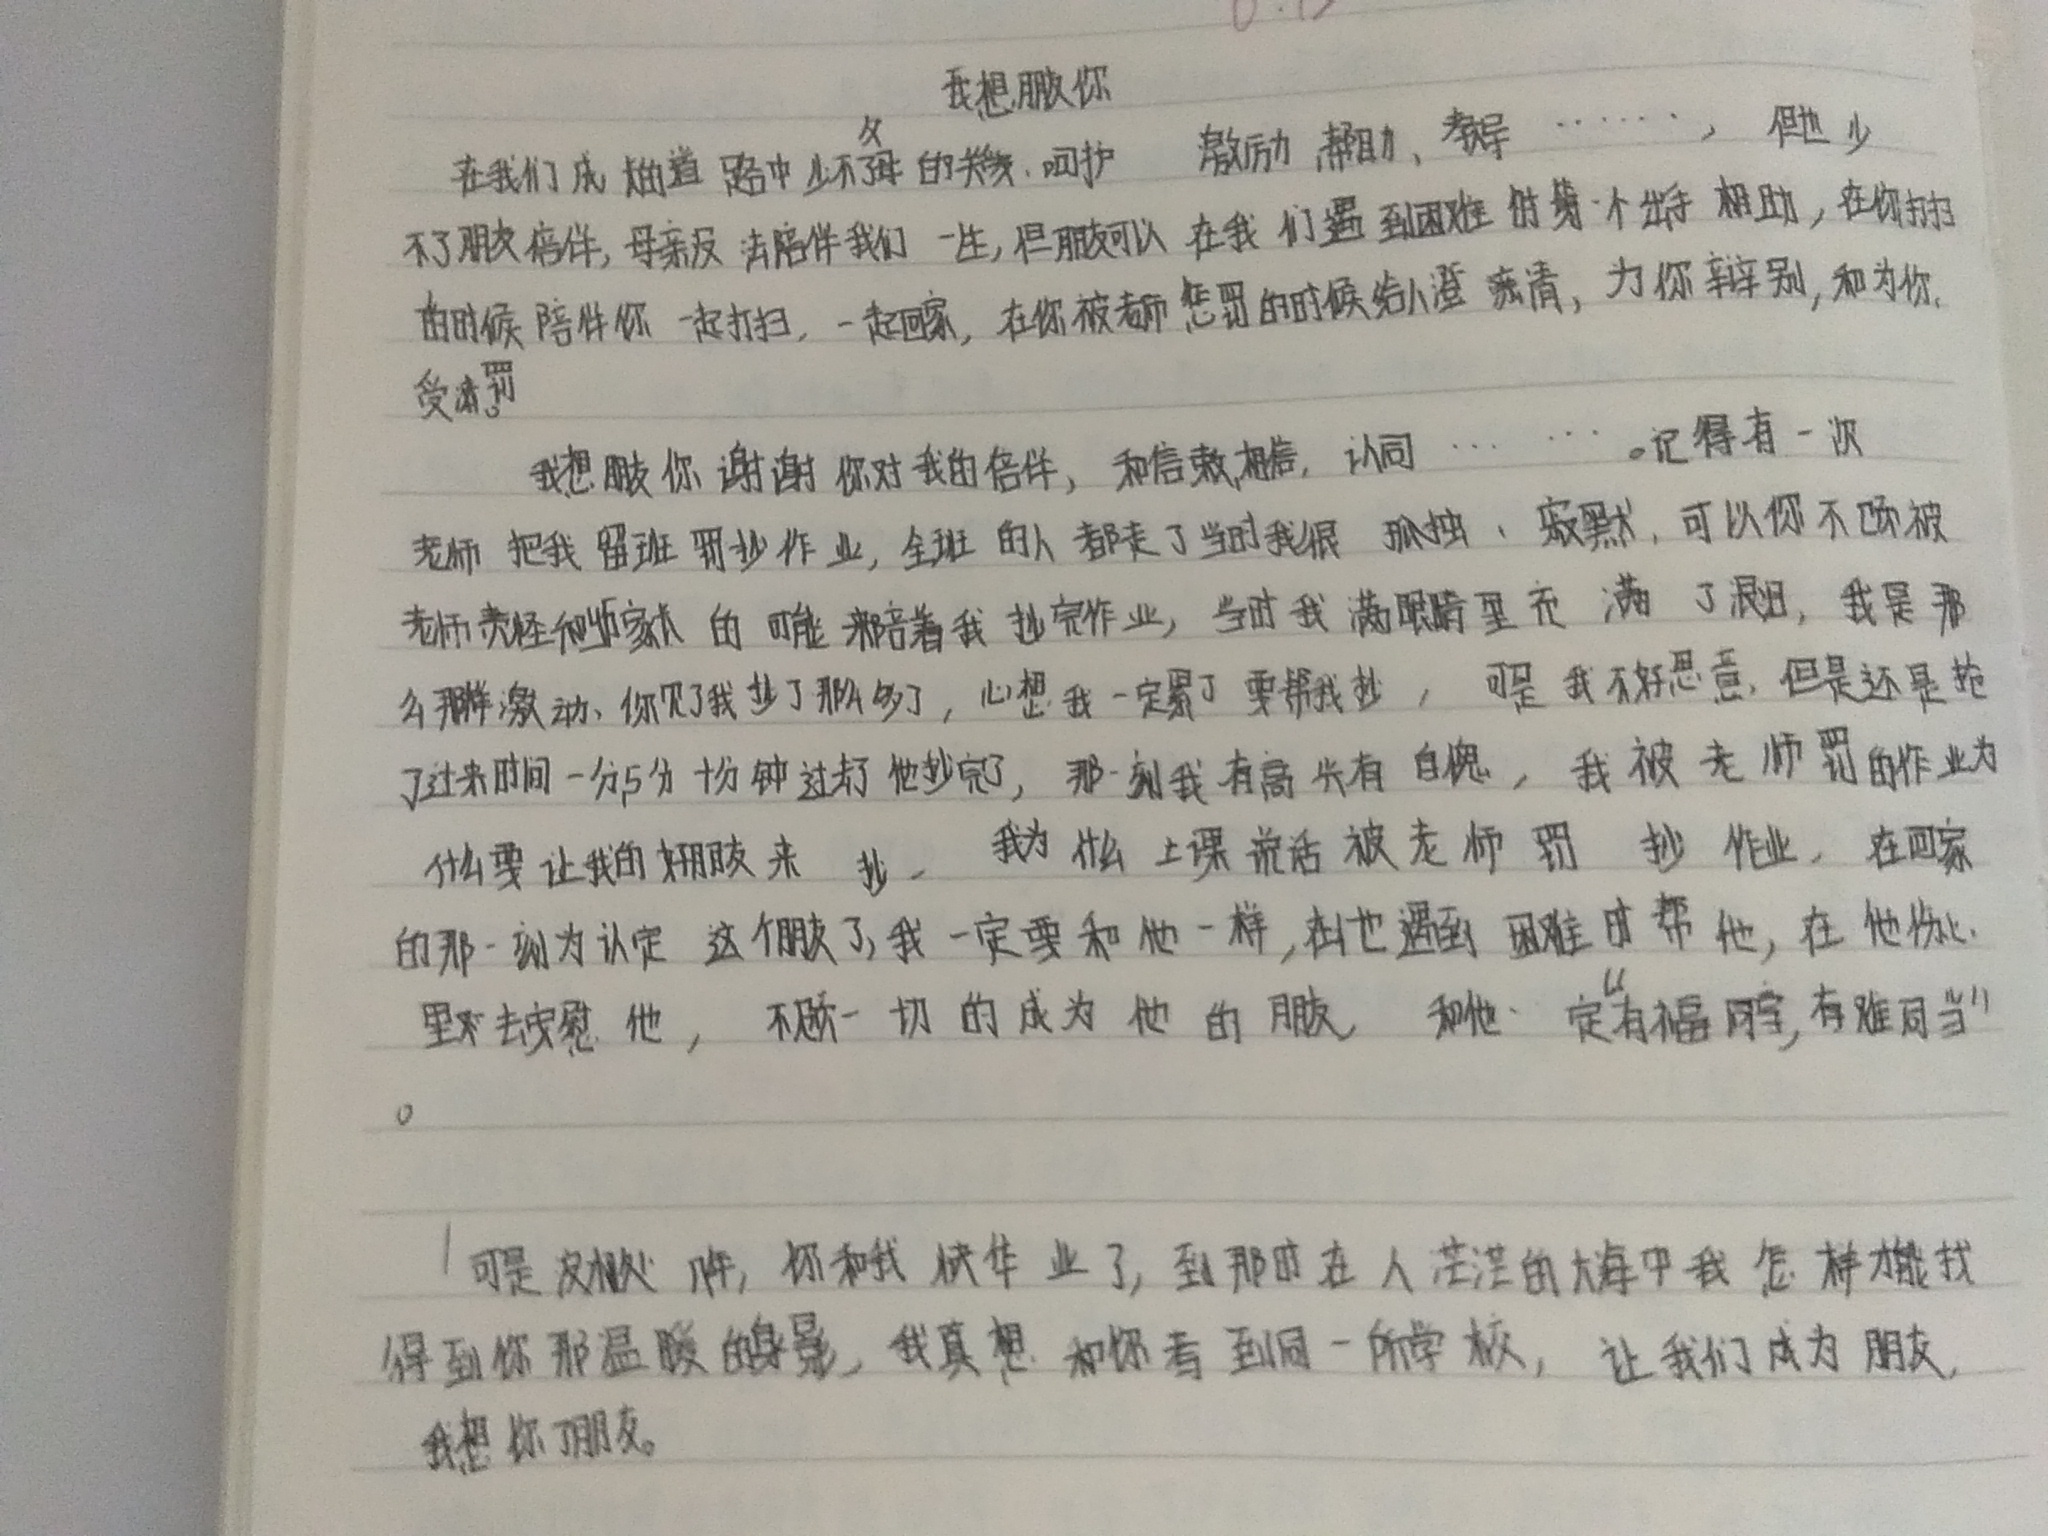 我想朋友你
在我们成长的道路中少不了父母的关爱、呵护 激励 帮助、教导……，但也少
不了朋友倍伴，母亲没法陪伴我们一生，但朋友可以在我们遇到困难时第一个出手相助，在你打扫
的时候陪伴你一起打扫，一起回家，在你被老师惩罚的时候给人澄清，为你辩别，和为你
受罚。
我想朋友你谢谢你对我的倍伴，和信赖，相信，认同……。记得有一次
老师把我留班罚抄作业，全班的人都走了当时我很孤独、寂默，可以你不顾被
老师责怪和家长的可能来陪着我抄完作业，当时我满眼睛里充满了泪，我是那
么那样激动、你见了我抄了那么多了，心想我一定累了要帮我抄，可是我不好思意，但是还是抢
了过来时间一分5分十分钟过去了他抄完了，那一刻我有高兴有自愧，我被老师罚的作业为
什么要让我的好朋友来抄、我为什么上课说话被老师罚抄作业、在回家
的那一刻为认定这个朋友了，我一定要和他一样，在他遇到困难时帮他，在他伤心
里去安慰他，不顾一切的成为他的朋友 和他一定“有福同享，有难同当”
。
可是没相处几年，你和我快毕业了，到那时在人茫茫的大海中我怎样才能找
得到你那温暖的身影，我真想和你考到同一所学校，让我们成为朋友，
我想你了朋友。